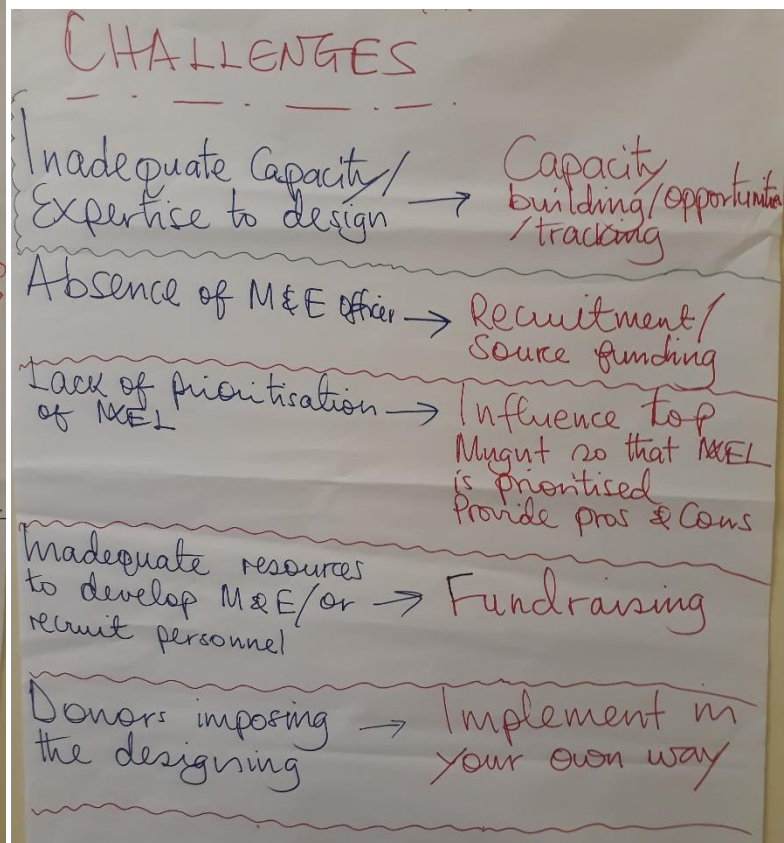 CHALLENGES
Inadequate Capacity/
Expertise to design
→ Capacity
building/opportunities
/tracking
Absence of M&E officer → Recruitment/
Source funding
Lack of prioritisation
of M&EL
→ Influence top
Mngnt so that M&EL
is prioritised
Provide pros & Cons
Inadequate resources
to develop M&E/or
recruit personnel
→ Fundraising
Donors imposing
the designing
→ Implement in
your own way